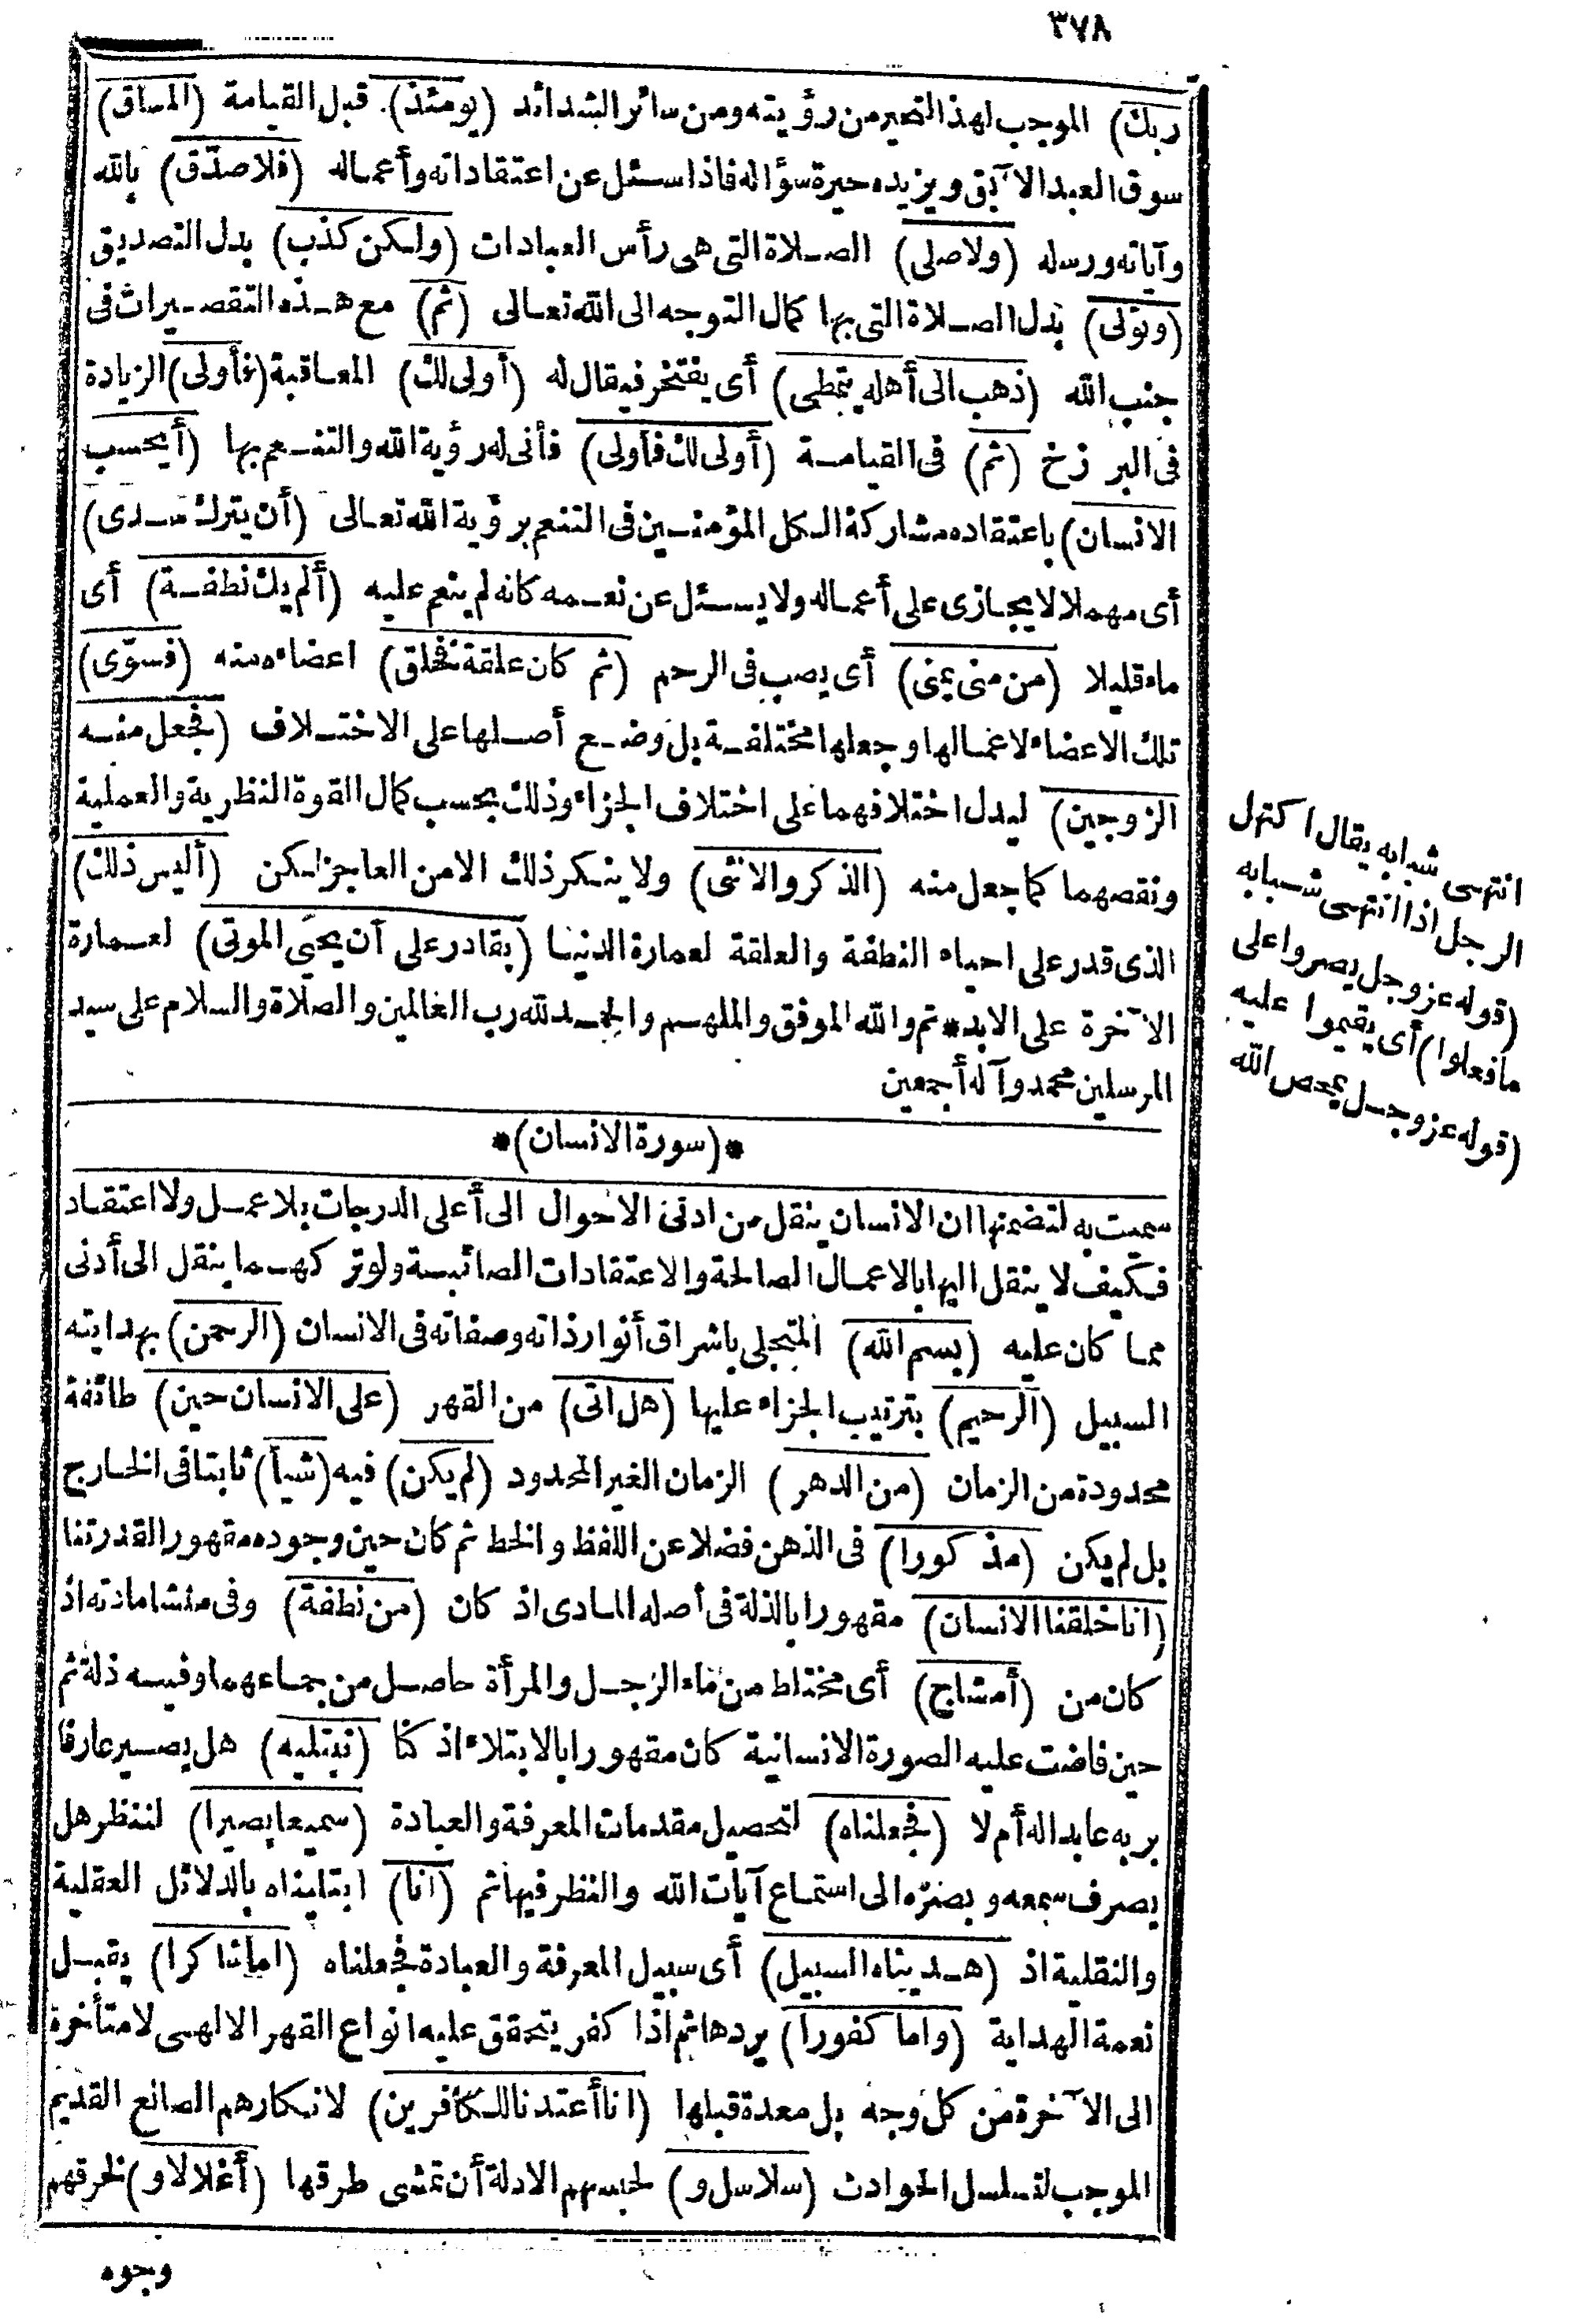 ٣٧٨
ربك) الموجب لهذا التصير من رؤيته ومن سائر الشدائد (يومئذ) قبل القيامة (المساق)
سوق العبد الآبق ويزيده حيرة سؤاله فاذا سئل عن اعتقاداته وأعماله (فلا صدّق) بالله
وآياته ورسله (ولا صلى) الصلاة التى هى رأس العبادات (ولكن كذب) بدل التصديق
(وتولى) بدل الصلاة التى بها كمال التوجه الى الله تعالى (ثم) مع هذه التقصيرات فى
جنب الله (ذهب الى أهله يتمطى) أى يفتخر فيقال له (أولى لك) المعاقبة (فأولى) الزيادة
فى البرزخ (ثم) فى القيامة (أولى لك فأولى) فأنى له رؤية الله والتنعم بها (أيحسب
الانسان) باعتقاده مشاركة الكل المؤمنين فى التنعم برؤية الله تعالى (أن يترك سدى)
أى مهملا لا يجازى على أعماله ولا يسئل عن نعمه كانه لم ينعم عليه (ألم يك نطفة) أى
ماء قليلا (من منى يمنى) أى يصب فى الرحم (ثم كان علقة فخلق) اعضاءه منه (فسوّى)
تلك الاعضاء لاعمالها وجعلها مختلفة بل وضع أصلها على الاختلاف (فجعل منه
الزوجين) ليدل اختلافهما على اختلاف الجزاء وذلك بحسب كمال القوة النظرية والعملية
ونقصهما كما جعل منه (الذكر والانثى) ولا ينكر ذلك الا من العاجز لكن (أليس ذلك)
الذى قدر على احياء النطفة والعلقة لعمارة الدنيا (بقادر على أن يحيى الموتى) لعمارة
الآخرة على الابد * تم والله الموفق والملهم والحمد لله رب العالمين والصلاة والسلام على سيد
المرسلين محمد وآله أجمعين
*(سورة الانسان)*
سميت به لتضمنها ان الانسان ينقل من ادنى الاحوال الى أعلى الدرجات بلا عمل ولا اعتقاد
فكيف لا ينقل اليها بالاعمال الصالحة والاعتقادات الصائبة ولو تركهما ينقل الى أدنى
مما كان عليه (بسم الله) المتجلى باشراق أنوار ذاته وصفاته فى الانسان (الرحمن) بهدايته
السبيل (الرحيم) بترتيب الجزاء عليها (هل اتى) من القهر (على الانسان حين) طائفة
محدودة من الزمان (من الدهر) الزمان الغير المحدود (لم يكن) فيه (شيأ) ثابتا فى الخارج
بل لم يكن (مذكورا) فى الذهن فضلا عن اللفظ والخط ثم كان حين وجوده مقهورا لقدرتنا
(انا خلقنا الانسان) مقهورا بالذلة فى أصله المادى اذ كان (من نطفة) وفى منشا مادته اذ
كان من (أمشاج) أى مختلط من ماء الرجل والمرأة حاصل من جماعهما وفيه ذلة ثم
حين فاضت عليه الصورة الانسانية كان مقهورا بالابتلاء اذ كنا (نبتليه) هل يصير عارفا
بربه عابدا له أم لا (فجعلناه) لتحصيل مقدمات المعرفة والعبادة (سميعا بصيرا) لننظر هل
يصرف سمعه وبصره الى استماع آيات الله والنظر فيها ثم (انا) ابتليناه بالدلائل العقلية
والنقلية اذ (هديناه السبيل) أى سبيل المعرفة والعبادة فجعلناه (اما شاكرا) يقبل
نعمة الهداية (واما كفورا) يردها ثم اذا كفر يتحقق عليه انواع القهر الالهى لا متأخرة
الى الآخرة من كل وجه بل معدة قبلها (انا أعتدنا للكافرين) لانكارهم الصانع القديم
الموجب لتسلسل الحوادث (سلاسل و) لحبسهم الادلة أن تمشى طرقها (أغلالا و) لخرقهم
وجوه
انتهى شبابه يقال اكتهل
الرجل اذا انتهى شبابه
(قوله عز وجل يصروا على
ما فعلوا) أى يقيموا عليه
(قوله عز وجل يمحص الله